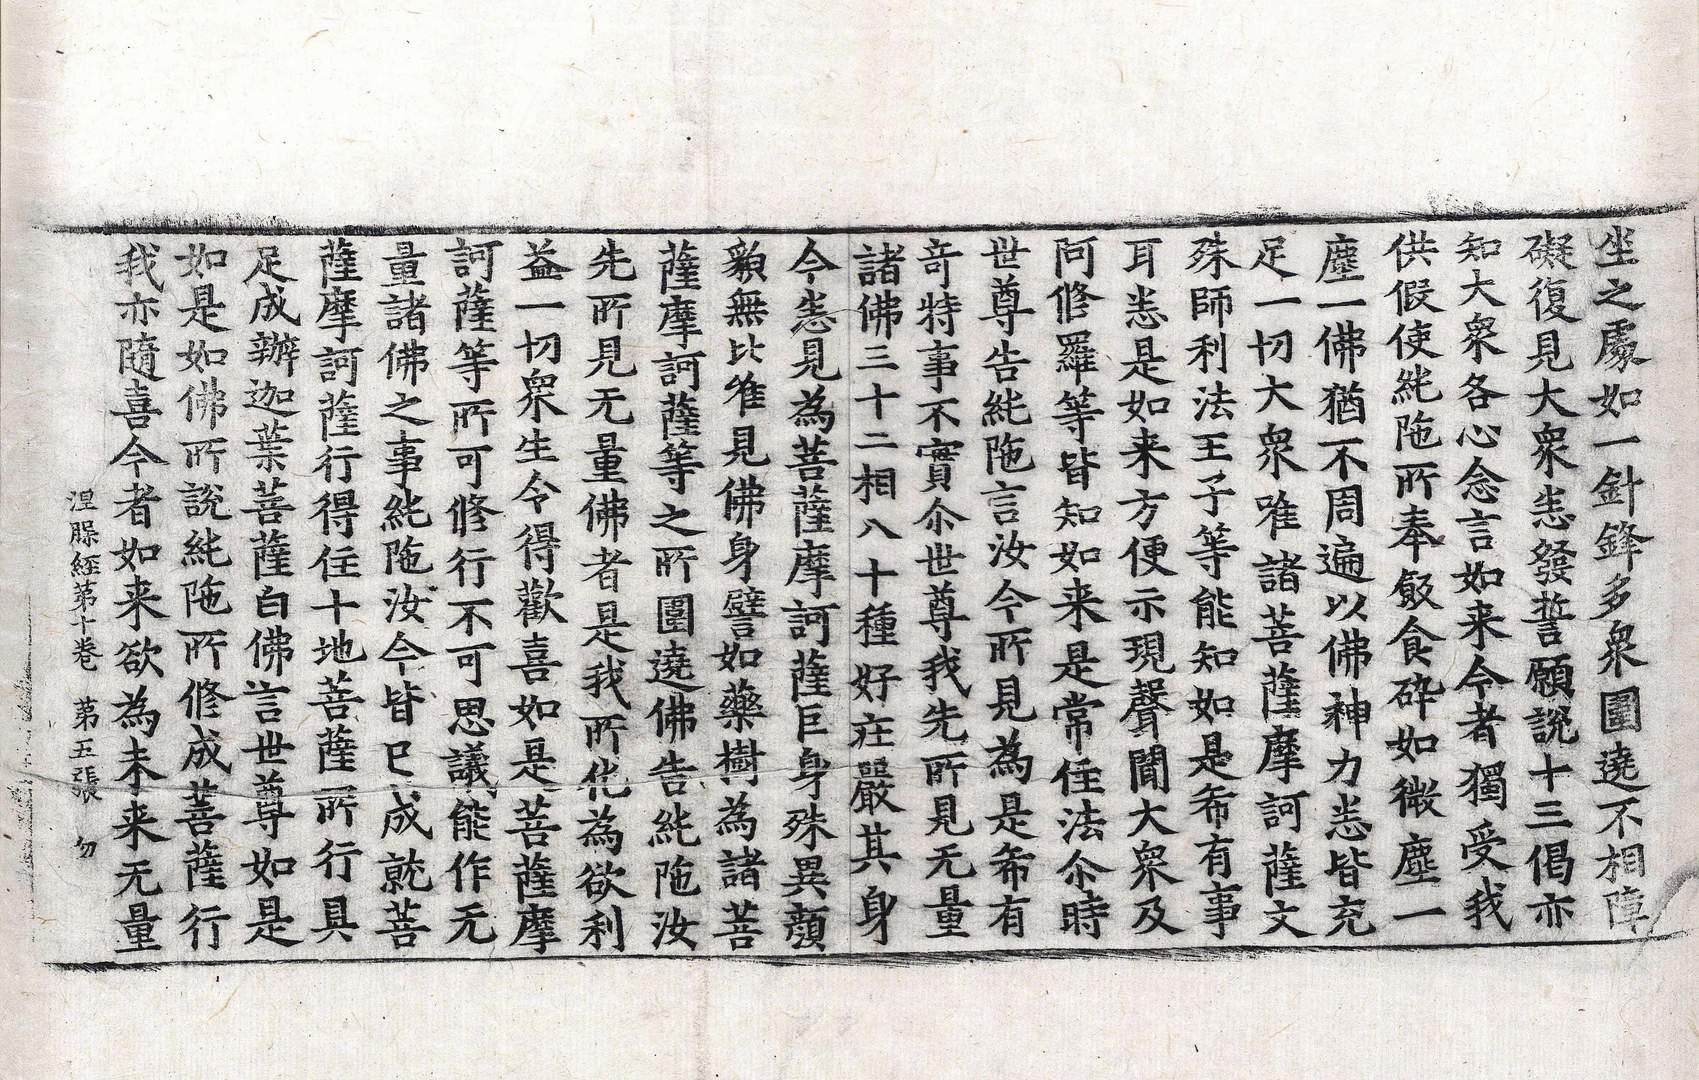 坐之處如一針鋒多衆圍遶不相障
礙復見大衆悉發誓願說十三偈亦
知大衆各心念言如来今者獨受我
供假使純陁所奉飯食碎如微塵一
塵一佛猶不周遍以佛神力悉皆充
足一切大衆唯諸菩薩摩訶薩文
殊師利法王子等能知如是希有事
耳悉是如来方便示現聲聞大衆及
阿修羅等皆知如来是常住法尒時
世尊告純陁言汝今所見為是希有
竒特事不實尒世尊我先所見无量
諸佛三十二相八十種好莊嚴其身
今悉見為菩薩摩訶薩巨身殊異顏
貌無比唯見佛身譬如藥樹為諸菩
薩摩訶薩等之所圍遶佛告純陁汝
先所見无量佛者是我所化為欲利
益一切衆生令得歡喜如是菩薩摩
訶薩等所可修行不可思議能作无
量諸佛之事純陁汝今皆已成就菩
薩摩訶薩行得住十地菩薩所行具
足成辦迦葉菩薩白佛言世尊如是
如是如佛所說純陁所修成菩薩行
我亦隨喜今者如来欲為未来无量
涅槃經第十卷 第五張 勿